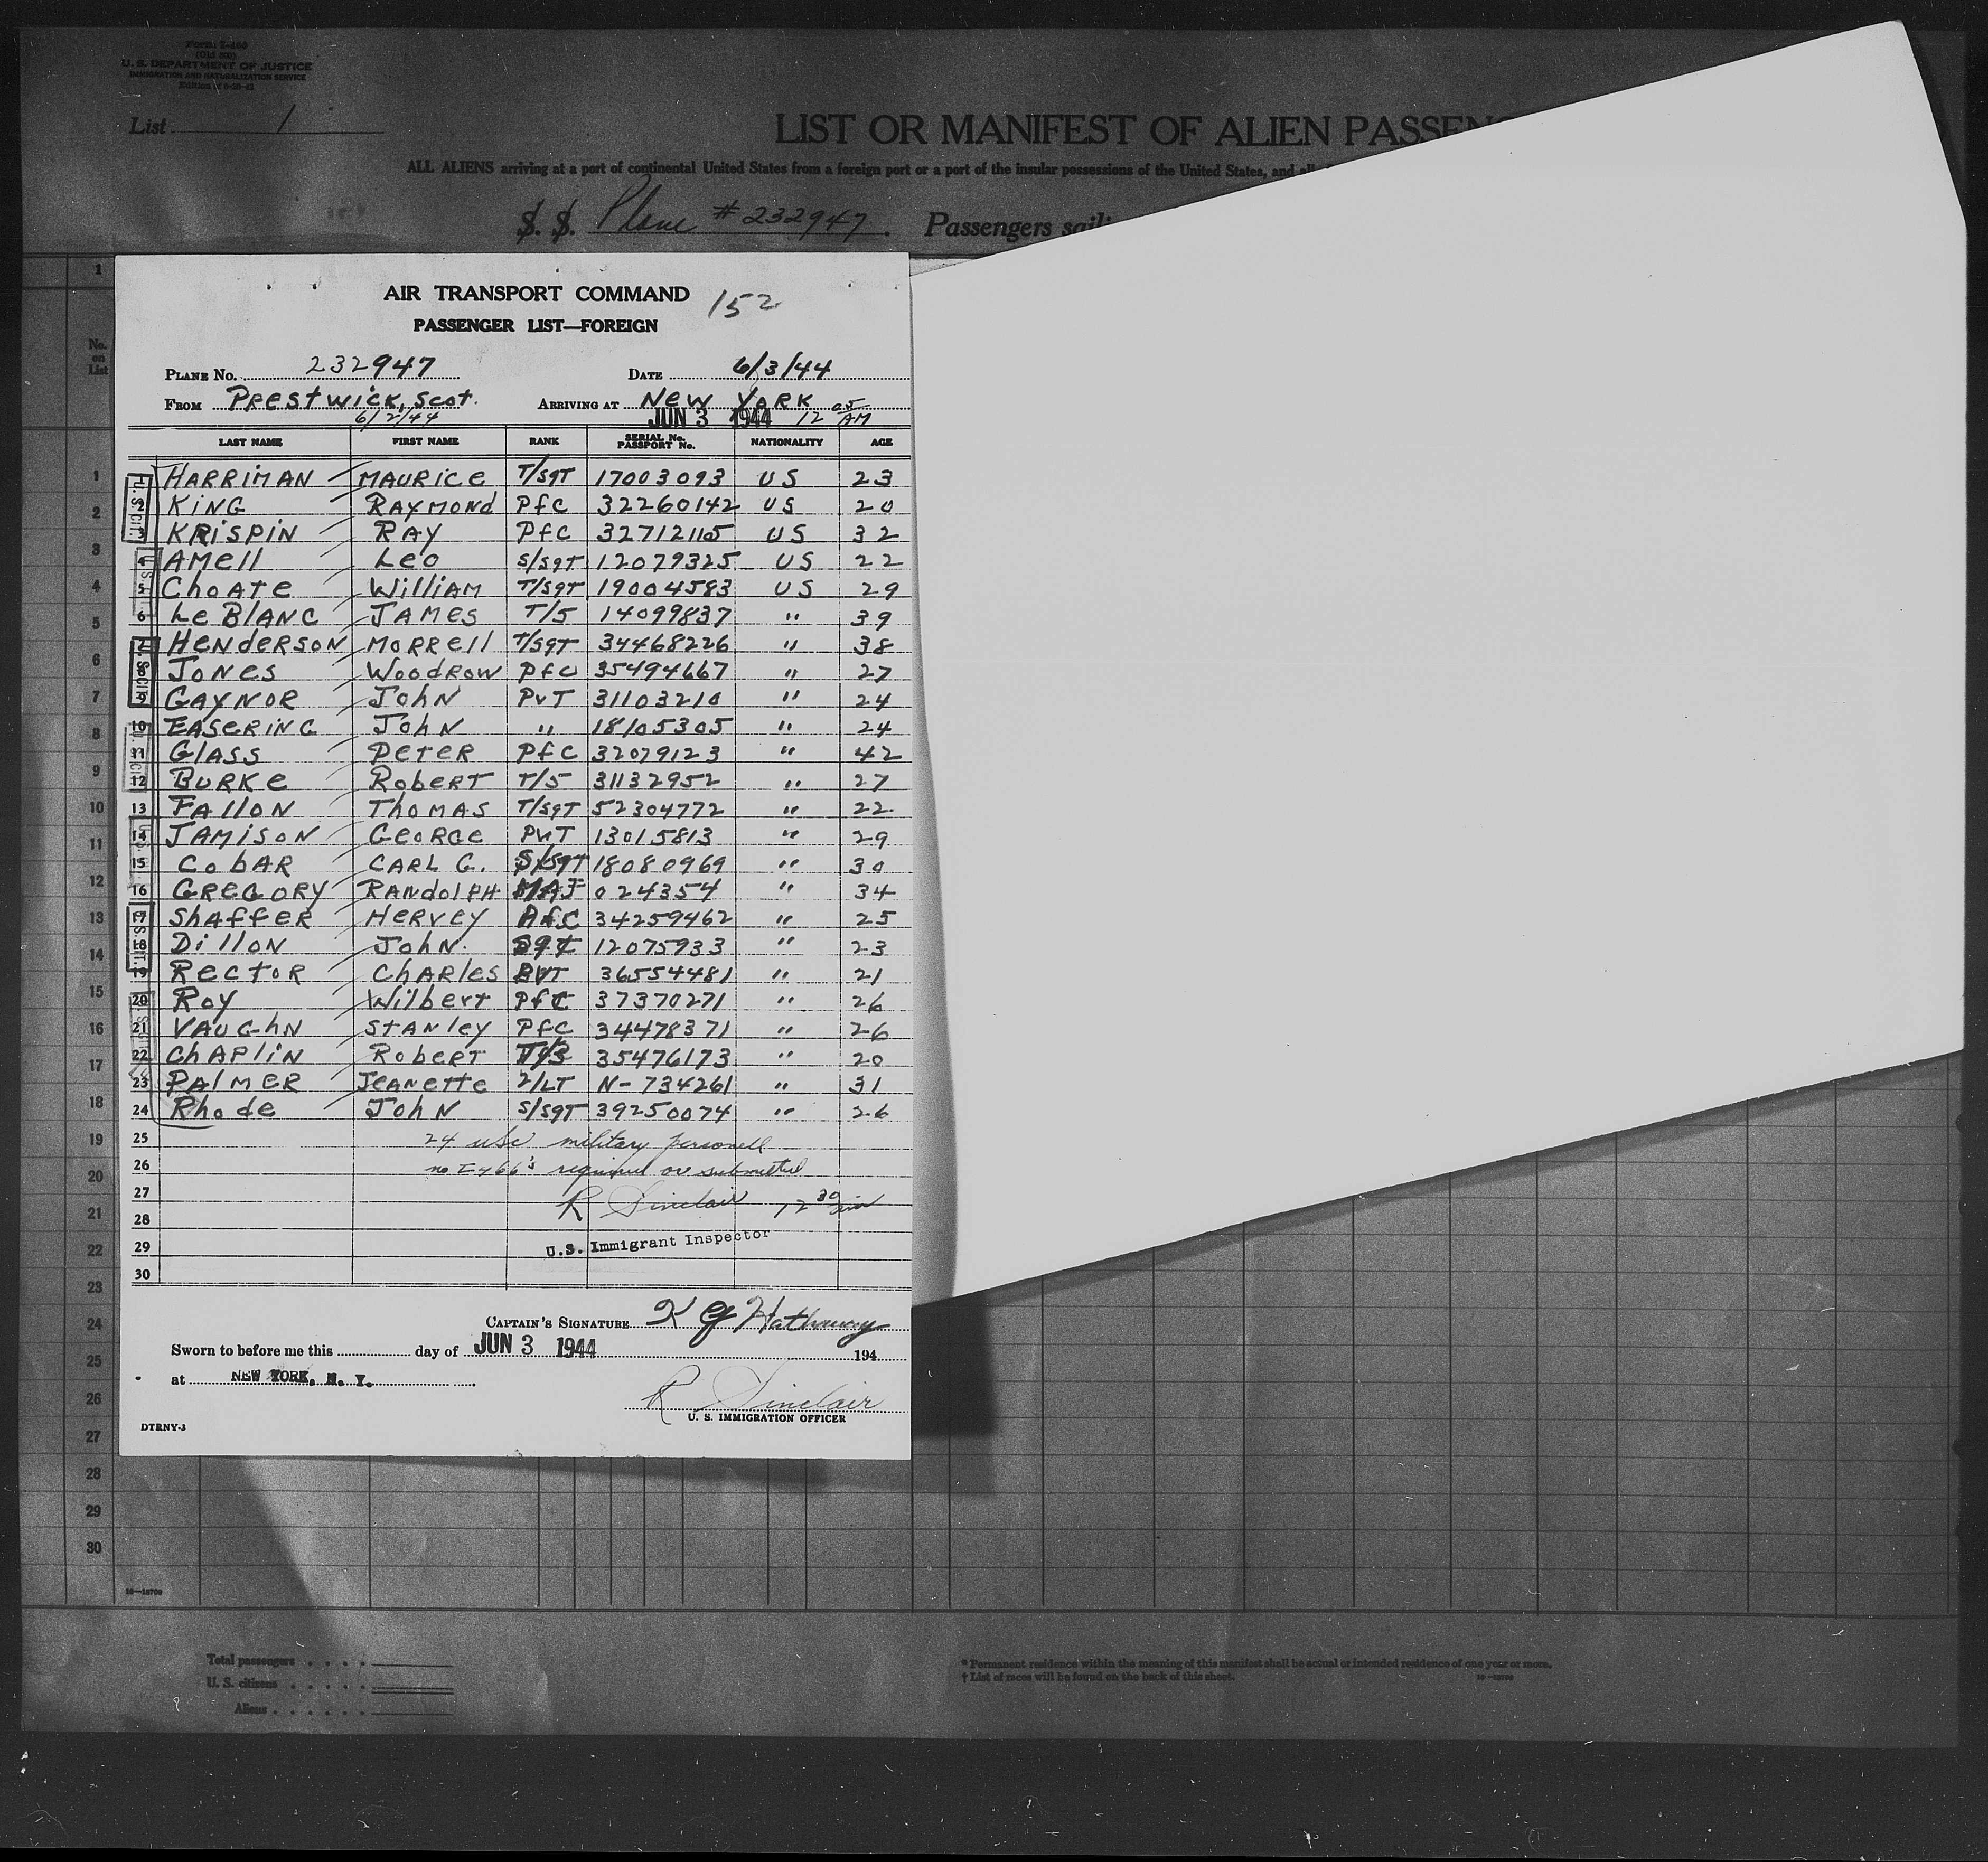 Form I-466
(Old 500)
U. S. DEPARTMENT OF JUSTICE
IMMIGRATION AND NATURALIZATION SERVICE
List 1
LIST OR MANIFEST OF ALIEN PASSEN
ALL ALIENS arriving at a port of continental United States from a foreign port or a port of the insular possessions of the United States, and all
S. S. Plane # 232947. Passengers saili
No. on List
AIR TRANSPORT COMMAND 152
PASSENGER LIST—FOREIGN
PLANE No. 232947 DATE 6/3/44
FROM Prestwick, Scot. ARRIVING AT New York
6/2/44 JUN 3 1944 12 05 AM
LAST NAME FIRST NAME RANK SERIAL No. PASSPORT No. NATIONALITY AGE
1 HARRIMAN MAURICE T/SGT 17003093 US 23
2 KING RAYMOND Pfc 32260142 US 20
3 KRISPIN RAY Pfc 32712115 US 32
4 AMell Leo S/SGT 12079325 US 22
5 ChoATe William T/SGT 19004583 US 29
6 Le BlANC JAMES T/5 14099837 " 39
7 HENDERSON MORRell T/SGT 34468226 " 38
8 JONES WOODROW Pfc 35494667 " 27
9 GAYNOR JohN PVT 31103210 " 24
10 EASERING JohN " 18105305 " 24
11 GlASS PETER Pfc 32079123 " 42
12 BURKe RobeRT T/5 31132952 " 27
13 FAllON ThoMAS T/SGT 52304772 " 22
14 JAMISON GEORGE PVT 13015813 " 29
15 CobAR CARL G. S/SGT 18080969 " 30
16 GREGORY RANdolPH MAJ 024354 " 34
17 ShAffER HERVEY Pfc 34259462 " 25
18 DillON JohN. SGT 12075933 " 23
19 RECTOR ChARles PVT 36554481 " 21
20 Roy Wilbert Pfc 37370271 " 26
21 VAUGhN STANley Pfc 34478371 " 26
22 ChAPliN RobERT T/3 35476173 " 20
23 PAlMER JEANette 2/LT N-734261 " 31
24 Rhode JohN S/SGT 39250074 " 26
25 24 usc military personell
26 no I-466's required or submitted
27 R Sinclair 12 30 am
28
29 U.S. Immigrant Inspector
30
CAPTAIN'S SIGNATURE K G Hathaway
Sworn to before me this day of JUN 3 1944 194
at NEW YORK, N. Y.
R Sinclair
U. S. IMMIGRATION OFFICER
DTRNY-3
1
2
3
4
5
6
7
8
9
10
11
12
13
14
15
16
17
18
19
20
21
22
23
24
25
26
27
28
29
30
Total passengers
U. S. citizens
Aliens
* Permanent residence within the meaning of this manifest shall be actual or intended residence of one year or more.
† List of races will be found on the back of this sheet.